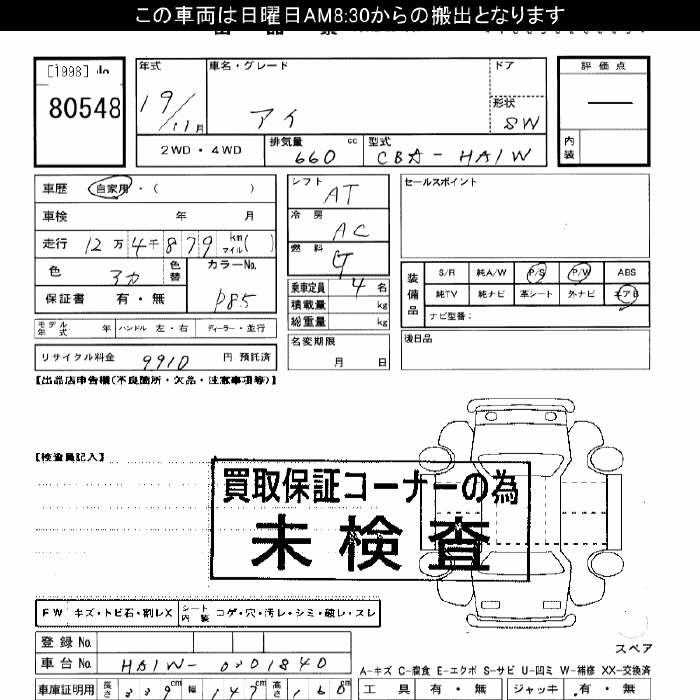 この車両は日曜日AM8:30からの搬出となります
[1998]
80548
年式 19/11月
車名・グレード アイ
ドア
形状 SW
評価点 —
内装
2WD・4WD
排気量 660 cc
型式 CBA-HA1W
車歴 自家用・( )
車検 年 月
走行 12万4千879 km マイル( )
色 アカ 色替
カラーNo. P85
保証書 有・無
シフト AT
冷房 AC
燃料 G
乗車定員 4名
積載量 kg
総重量 kg
名変期限 月 日
セールスポイント
装備品
S/R 純A/W P/S P/W ABS
純TV 純ナビ 革シート 外ナビ エアB
ナビ型番:
後日品
モデル年式 年 ハンドル 左・右 ディーラー・並行
リサイクル料金 9910 円 預託済
【出品店申告欄(不良箇所・欠品・注意事項等)】
【検査員記入】
買取保証コーナーの為
未検査
FW キズ・トビ石・割レX
シート内装 コゲ・穴・汚レ・シミ・破レ・スレ
登録No.
車台No. HA1W-0301840
スペア
A-キズ C-腐食 E-エクボ S-サビ U-凹ミ W-補修 XX-交換済
車庫証明用 長さ 339cm 幅 147cm 高さ 160cm
工具 有・無 ジャッキ 有・無